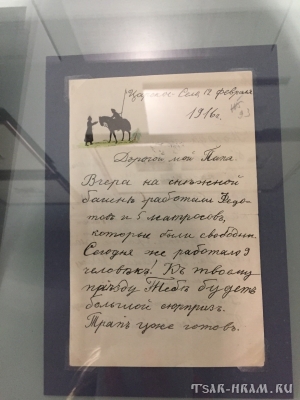 Царское Село 17 февраля
1916 г.
Дорогой мой Папа
Вчера на снѣжной
башнѣ работали Федо-
товъ и 5 матросовъ,
которые были свободны.
Сегодня же работало 9
человѣкъ! Къ твоему
пріѣзду Тебѣ будетъ
большой сюрпризъ.
Трапъ уже готовъ.
TSAR-HRAM.RU